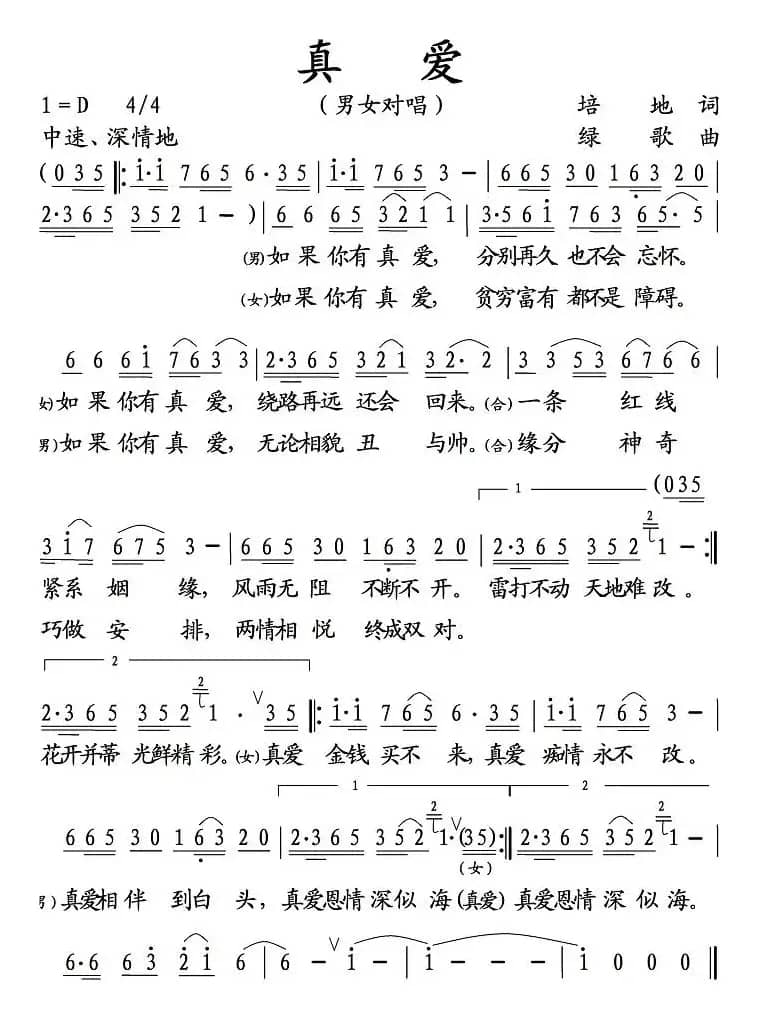 真 爱
1=D 4/4 （男女对唱） 培 地 词
中速、深情地 绿 歌 曲
(035 ‖: i·i 765 6·35 | i·i 765 3 – | 665 30 163 20 |
2·365 352 1 – ) | 6 6 65 321 1 | 3·561 763 65·5 |
(男)如果你有真 爱, 分别再久 也不会 忘怀。
(女)如果你有真 爱, 贫穷富有 都不是 障碍。
6 6 6i 763 3 | 2·365 321 32·2 | 3 3 53 676 6 |
女)如果你有真 爱, 绕路再远 还会 回来。(合)一条 红线
男)如果你有真 爱, 无论相貌 丑 与帅。(合)缘分 神奇
1 (035
3i7 675 3 – | 665 30 163 20 | 2·365 352 2 1 – :‖
紧系 姻 缘, 风雨无 阻 不断不 开。 雷打不动 天地难 改。
巧做 安 排, 两情相 悦 终成双 对。
2
2·365 352 2 1 · ∨ 35 ‖: i·i 765 6·35 | i·i 765 3 – |
花开并蒂 光鲜精 彩。(女)真爱 金钱 买不 来, 真爱 痴情 永不 改。
1 2
665 30 163 20 | 2·365 352 2 1·∨(35) :‖ 2·365 352 2 1 – |
(女)
男)真爱相伴 到白 头, 真爱恩情深似 海(真爱) 真爱恩情深 似 海。
6·6 63 2i 6 | 6 – ∨ i – | i – – – | i 0 0 0 ‖